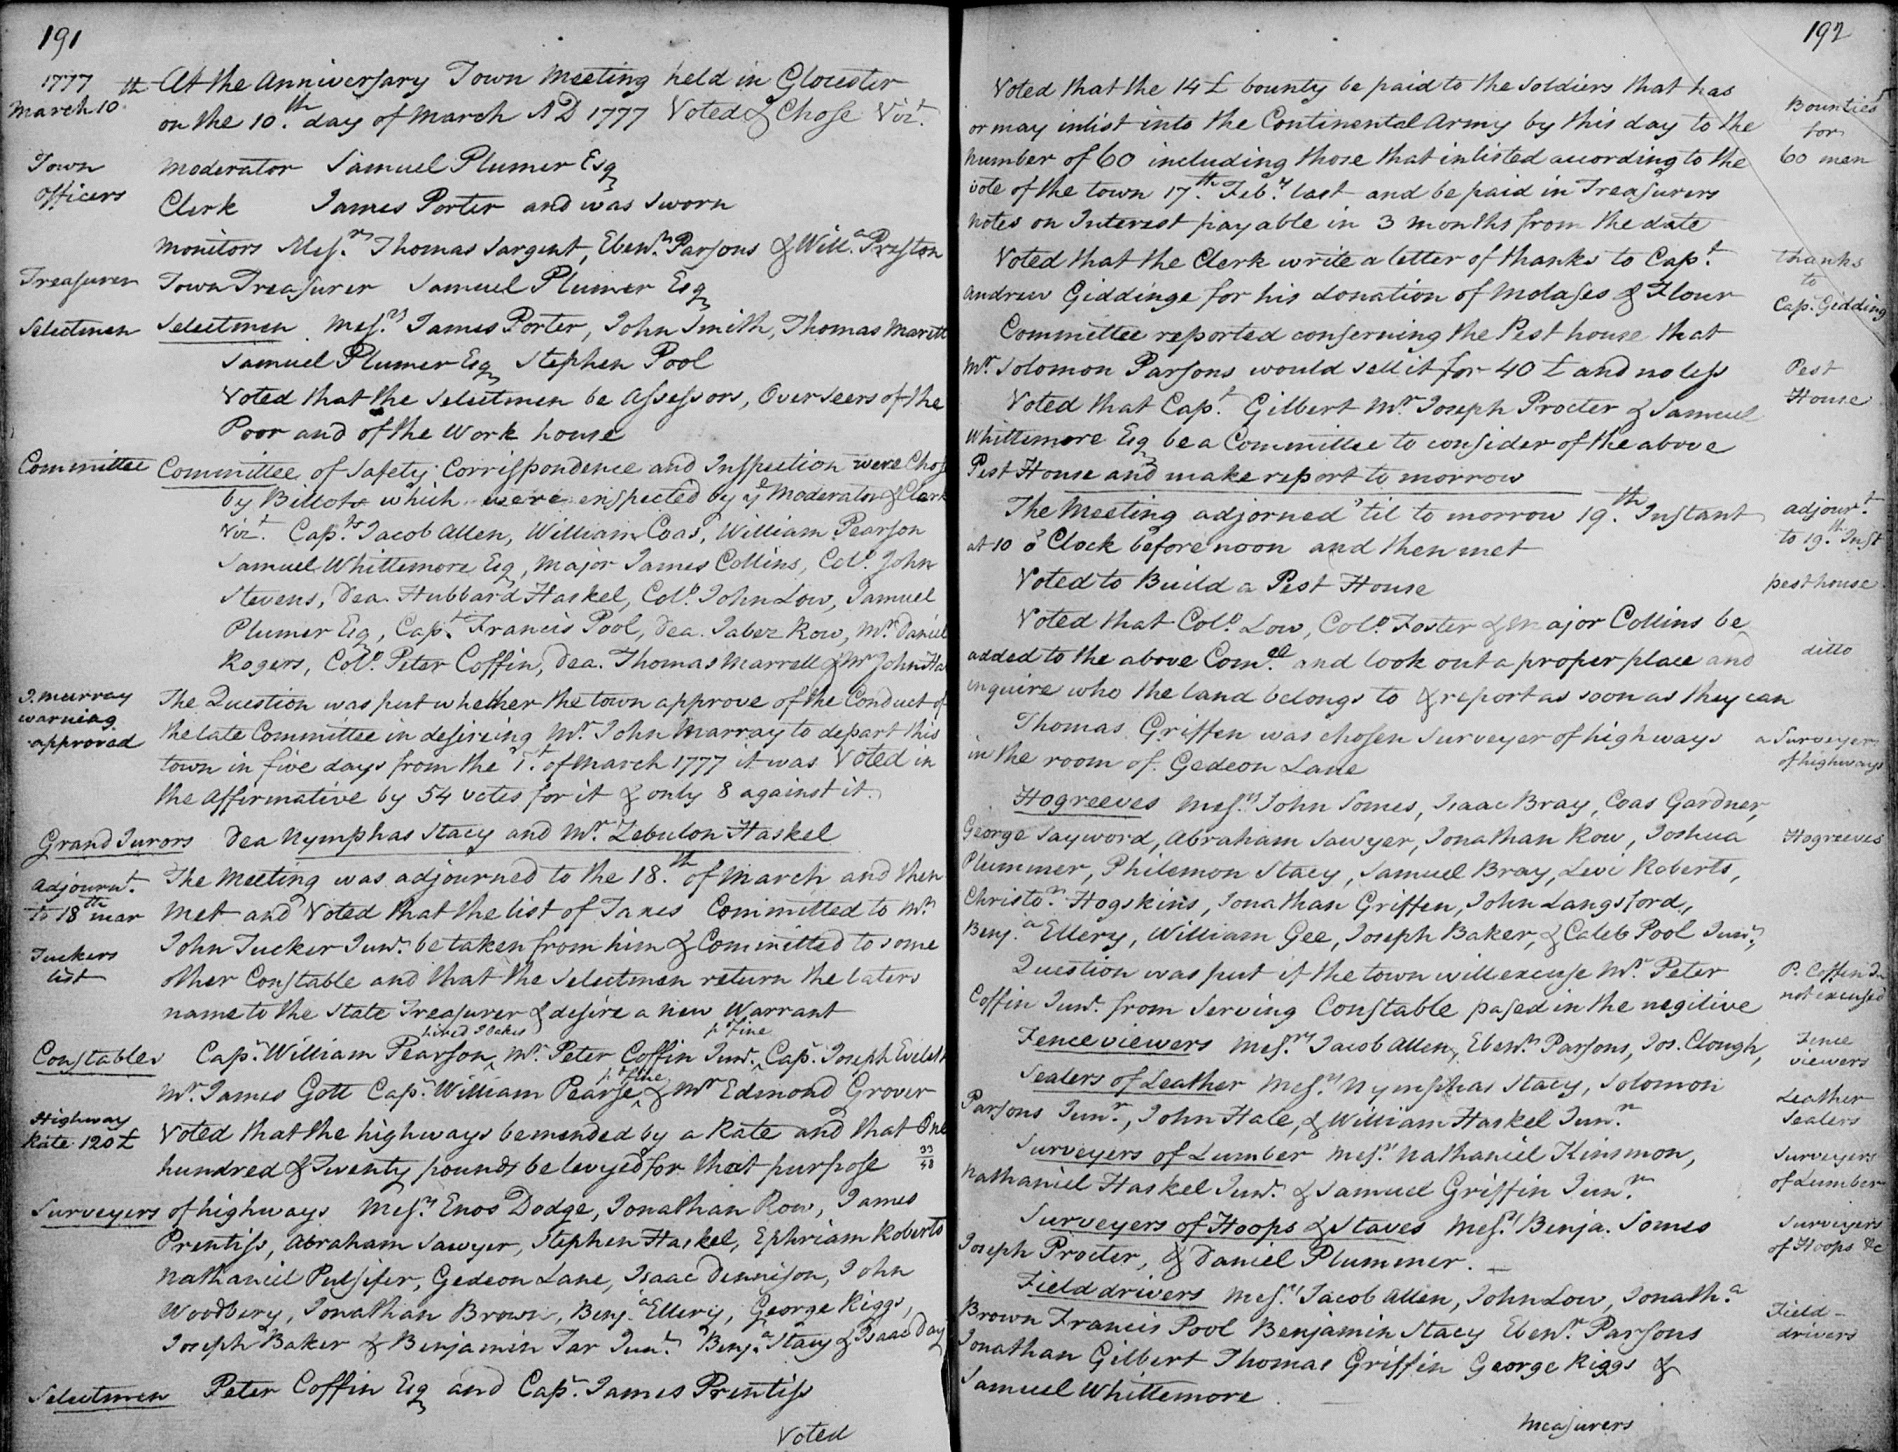 191
1777 th At the Anniversary Town Meeting held in Glocester
March 10 on the 10.th day of March AD 1777 Voted & Chose Vizt.
Town Moderator Samuel Plumer Esq
Officers Clerk James Porter and was Sworn
Monitors Mesrs Thomas Sargent, Ebenr. Parsons & Willm. Preston
Treasurer Town Treasurer Samuel Plumer Esq
Selectmen Selectmen Mesrs James Porter, John Smith, Thomas Marrett
Samuel Plumer Esq Stephen Pool
Voted that the Selectmen be Assessors, Overseers of the
Poor and of the Work house
Committee Committee of Safety Corrispondence and Inspection were Chose
by Billots which were inspected by ye Moderator & Clerk
Vizt. Capts Jacob Allen, William Coas, William Pearson
Samuel Whittemore Esq, Major James Collins, Colo. John
Stevens, Dea. Hubbard Haskel, Colo. John Low, Samuel
Plumer Esq, Capt. Francis Pool, Dea. Jabez Row, Mr. Daniel
Rogers, Colo. Peter Coffin, Dea. Thomas Marrell & Mr John
J. Murray The Question was put whether the town approve of the Conduct of
warning the late Committee in desireing Mr. John Marray to depart this
approved town in five days from the 1t. of March 1777 it was Voted in
the Affirmative by 54 votes for it & only 8 against it.
Grand Jurors Dea Nymphas Stacy and Mr. Zebulon Haskel
Adjournt. The Meeting was adjourned to the 18.th of March and then
to 18th mar Met and Voted that the list of Taxes Committed to Mr
Tuckers John Tucker Junr. be taken from him & Committed to some
list other Constable and that the Selectmen return the laters
name to the State Treasurer & desire a new Warrant
pd. Fine
Constables Capt. William Pearson, Mr. Peter Coffin Junr. Capt. Joseph
pd. Fine
Mr. James Gott Capt. William Pearse & Mr Edmond Grover
Highway Voted that the highways be mended by a Rate and that One
Rate 120£ hundred & Twenty pounds be levyed for that purpose
Surveyers of highways Mesrs Enos Dodge, Jonathan Row, James
Prentiss, Abraham Sawyer, Stephen Haskel, Ephriam Roberts
Nathaniel Pulsifer, Gedeon Lane, Isaac Dennison, John
Woodbery, Jonathan Brown, Benja Ellery, George Riggs,
Joseph Baker & Benjamin Tar Junr. Benja. Stacy & Isaac Day
Selectmen Peter Coffin Esq and Capt. James Prentiss
Voted
192
Voted that the 14£ bounty be paid to the Soldiers that has
or may inlist into the Continental Army by this day to the Bounties
number of 60 including those that inlisted according to the for 60 men
vote of the town 17th. Feby. last and be paid in Treasurers
notes on Interest payable in 3 months from the date
Voted that the Clerk write a letter of thanks to Capt. thanks
Andrew Giddinge for his donation of Molases & Flour to Capt. Gidding
Committee reported conserning the Pest house that
Mr. Solomon Parsons would sell it for 40£ and no less Pest
Voted that Capt. Gilbert Mr Joseph Procter & Samuel House
Whittemore Esq be a Committee to consider of the above
Pest House and make report to morrow
The Meeting adjorned 'til to morrow 19.th Instant adjournt.
at 10 o Clock before noon and then met to 19.th Inst
Voted to Build a Pest House pest house
Voted that Colo. Low, Colo. Foster & Major Collins be
added to the above Comee and look out a proper place and ditto
inquire who the land belongs to & report as soon as they can
Thomas Griffen was chosen Surveyer of highways a Surveyer
in the room of Gedeon Lane of highways
Hogreeves Mesrs John Somes, Isaac Bray, Coas Gardner,
George Sayword, Abraham Sawyer, Jonathan Row, Joshua Hogreeves
Plummer, Philemon Stacy, Samuel Bray, Levi Roberts,
Christor. Hogskins, Jonathan Griffen, John Langsford,
Benj.a Ellery, William Gee, Joseph Baker, & Caleb Pool Junr.,
Question was put if the town will excuse Mr. Peter P. Coffin Jn
Coffin Junr. from Serving Constable pased in the negitive not excused
Fence viewers Mesrs Jacob Allen, Ebenr. Parsons, Jos. Clough, Fence viewers
Sealers of Leather Mesrs Nymphas Stacy, Solomon Leather
Parsons Junr., John Hale, & William Haskel Junr. Sealers
Surveyers of Lumber Mesrs Nathaniel Kinsmon, Surveyers
Nathaniel Haskel Junr. & Samuel Griffin Junr. of Lumber
Surveyers of Hoops & Staves Mesrs Benja. Somes Surveyers
Joseph Procter, & Daniel Plummer. of Hoops &c
Field drivers Mesrs Jacob Allen, John Low, Jonatha.
Brown Francis Pool Benjamin Stacy Ebenr. Parsons Field-drivers
Jonathan Gilbert Thomas Griffin George Riggs &
Samuel Whittemore
Measurers